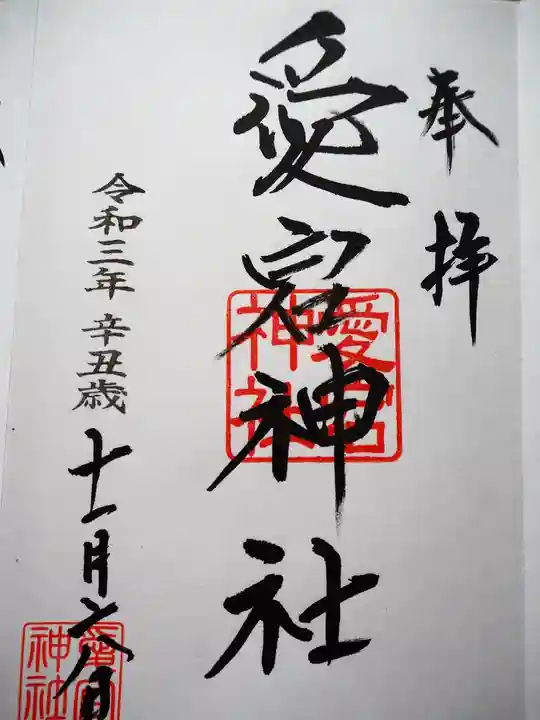 奉拝
愛宕神社
愛宕神社
令和三年 辛丑歳 十一月六日
愛宕神社